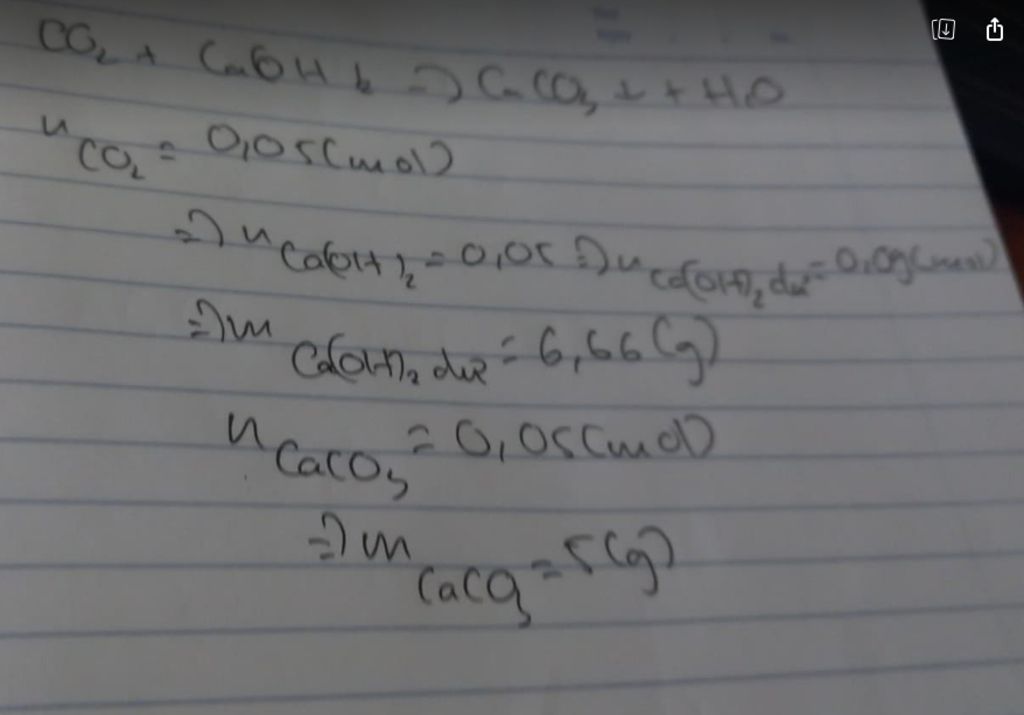 CO₂ + Ca(OH)₂ => CaCO₃ ↓ + HO
nCO₂ = 0,05(mol)
=> nCa(OH)₂ = 0,05 => nCa(OH)₂ dư = 0,09(mol)
=> mCa(OH)₂ dư = 6,66(g)
nCaCO₃ = 0,05(mol)
=> mCaCO₃ = 5(g)